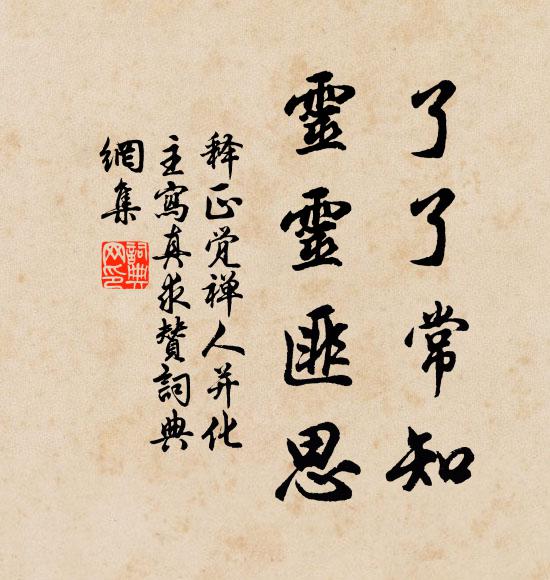 了了常知
靈靈匪思
释正觉禅人并化
主寫真求贊詞典
網集
詞典
网印